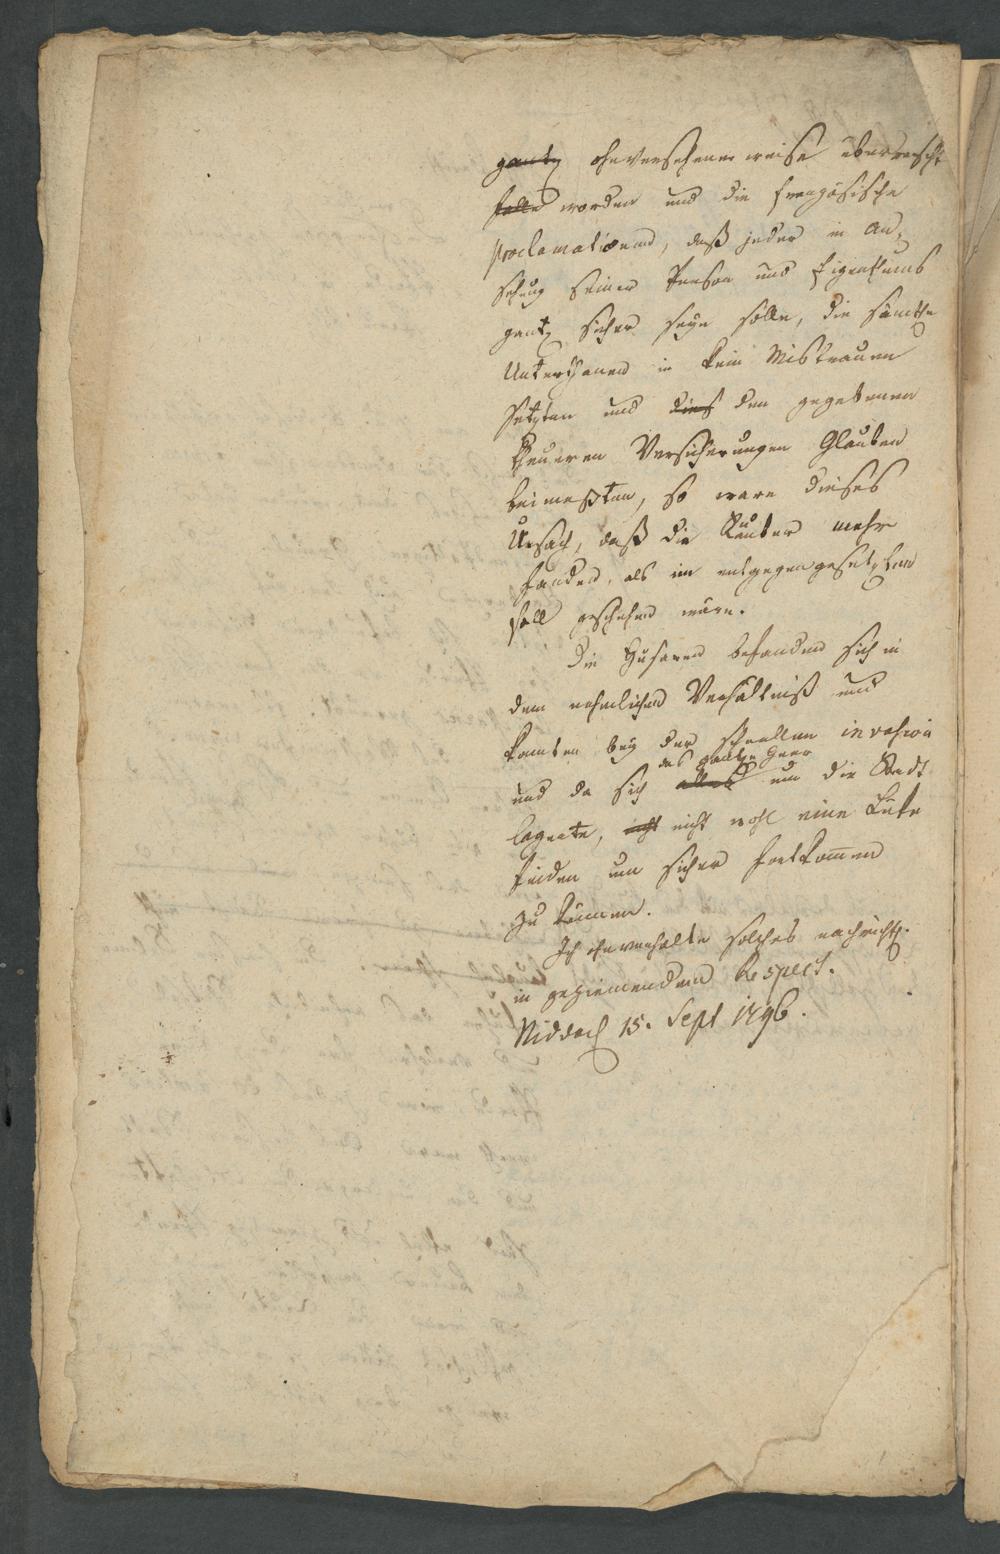 gantz ohnversehener weise überrascht
falle worden und die französische
Proclamationen, daß jeder in An-
sehung seiner Person und Eigenthums
gantz sicher seyn solle, die sämtle
Unterthanen in kein Mistrauen
setzten und dies den gegebenen
theueren Versicherungen Glauben
beimeßten, so ware dieses
Ursach, daß die Räuber mehr
fanden, als im entgegengesetzten
fall geschehen wäre.
Die Husaren befanden sich in
dem nehmlichen Verhältniß und
konnten bey der schnellen invasion
das gantze Heer
und da sich alles um die Stadt
lagerte, nicht nicht wohl eine Luke
finden um sicher fortkommen
zu können.
Ich ohnverhalte solches nachrichtl.
in geziemendem Respect.
Nidda d. 15. Sept 1796.